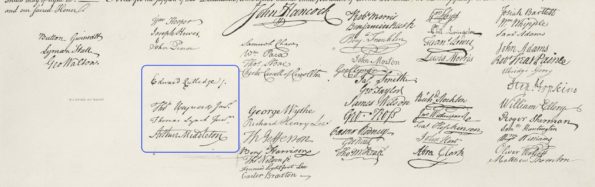 John Hancock
Button Gwinnett
Lyman Hall
Geo Walton.
Wm Hooper
Joseph Hewes,
John Penn
Edward Rutledge /.
Thos Heyward Junr.
Thomas Lynch Junr.
Arthur Middleton
Samuel Chase
Wm Paca
Thos Stone
Charles Carroll of Carrollton
George Wythe
Richard Henry Lee
Th Jefferson
Benj Harrison
Thos Nelson jr.
Francis Lightfoot Lee
Carter Braxton
Robt Morris
Benjamin Rush
Benj Franklin
John Morton
Geo Clymer
Jas Smith
Geo Taylor
James Wilson
Geo. Ross
Caesar Rodney
Geo Read
Tho M:Kean
Wm Floyd
Phil. Livingston
Frans Lewis
Lewis Morris
Richd Stockton
Jno Witherspoon
Fras Hopkinson
John Hart
Abra Clark
Josiah Bartlett
Wm Whipple
Saml Adams
John Adams
Robt Treat Paine
Elbridge Gerry
Step Hopkins
William Ellery
Roger Sherman
Saml Huntington
Wm Williams
Oliver Wolcott
Matthew Thornton